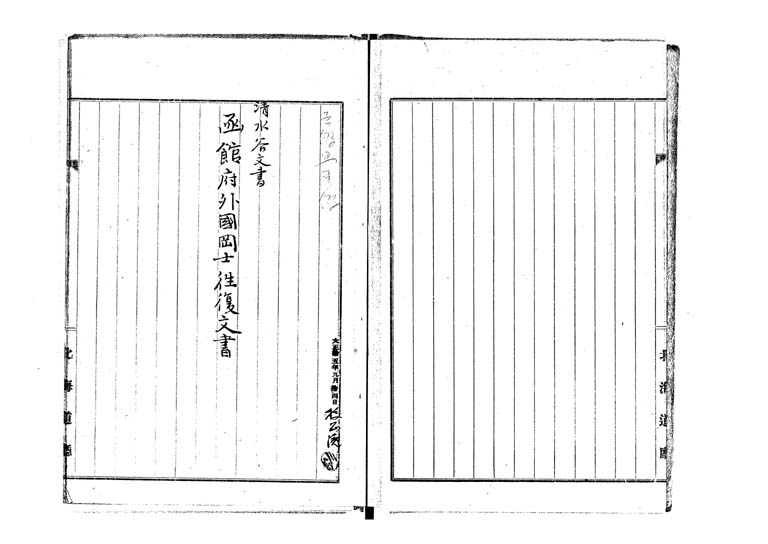 北海道廳
大正拾五年九月拾四日
清水谷文書
凾館府外國岡士往復文書
北海道廳